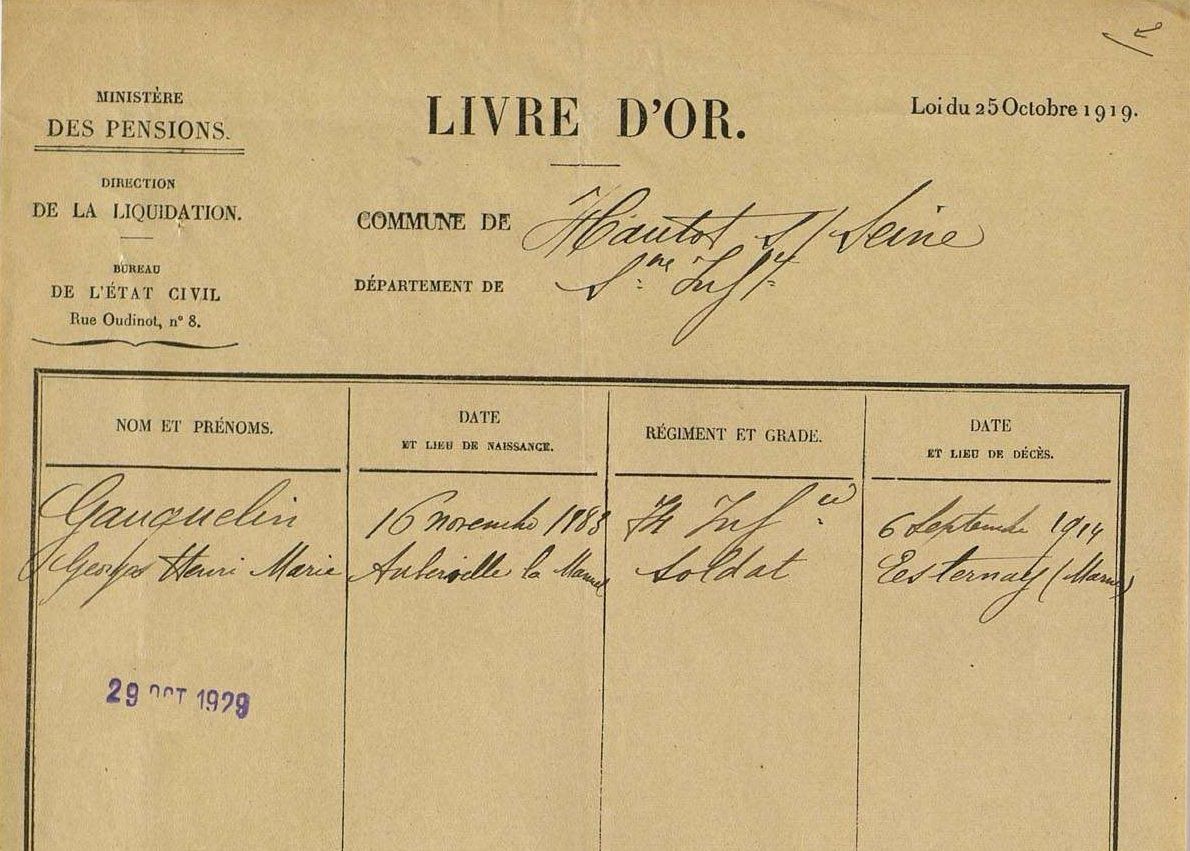 MINISTÈRE
DES PENSIONS.
DIRECTION
DE LA LIQUIDATION.
BUREAU
DE L'ÉTAT CIVIL
Rue Oudinot, n° 8.
LIVRE D'OR.
Loi du 25 Octobre 1919.
COMMUNE DE Hautot S/ Seine
DÉPARTEMENT DE Sne Infre
NOM ET PRÉNOMS.
DATE
ET LIEU DE NAISSANCE.
RÉGIMENT ET GRADE.
DATE
ET LIEU DE DÉCÈS.
Gauquelin
Georges Henri Marie
16 novembre 1888
la
Infie
Soldat
6 Septembre 1914
Esternay (Marne)
29 OCT 1929